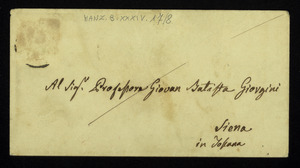 MANZ. B. XXXIV. 17/8
Al Sigr. Professore Giovan Batista Giorgini
Siena
in Toscana